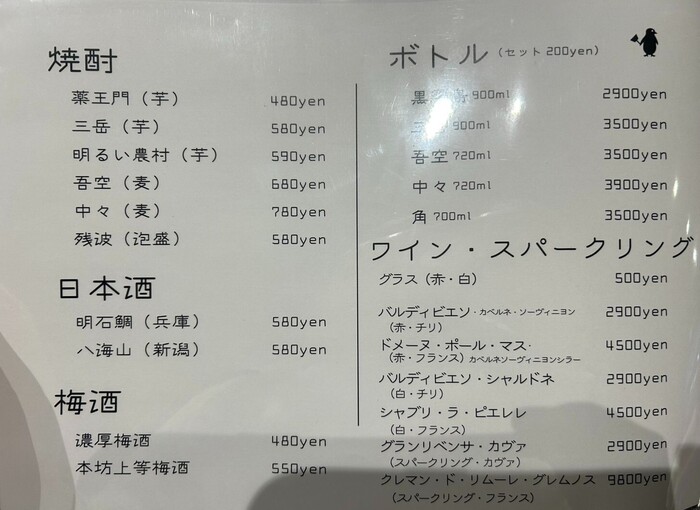 焼酎
薬王門（芋） 480yen
三岳（芋） 580yen
明るい農村（芋） 590yen
吾空（麦） 680yen
中々（麦） 780yen
残波（泡盛） 580yen
日本酒
明石鯛（兵庫） 580yen
八海山（新潟） 580yen
梅酒
濃厚梅酒 480yen
本坊上等梅酒 550yen
ボトル（セット 200yen）
黒 900ml 2900yen
900ml 3500yen
吾空 720ml 3500yen
中々 720ml 3900yen
角 700ml 3500yen
ワイン・スパークリング
グラス（赤・白） 500yen
バルディビエソ・カベルネ・ソーヴィニヨン 2900yen
（赤・チリ）
ドメーヌ・ポール・マス・ 4500yen
（赤・フランス）カベルネソーヴィニヨンシラー
バルディビエソ・シャルドネ 2900yen
（白・チリ）
シャブリ・ラ・ピエレレ 4500yen
（白・フランス）
グランリベンサ・カヴァ 2900yen
（スパークリング・カヴァ）
クレマン・ド・リムーレ・グレムノス 9800yen
（スパークリング・フランス）